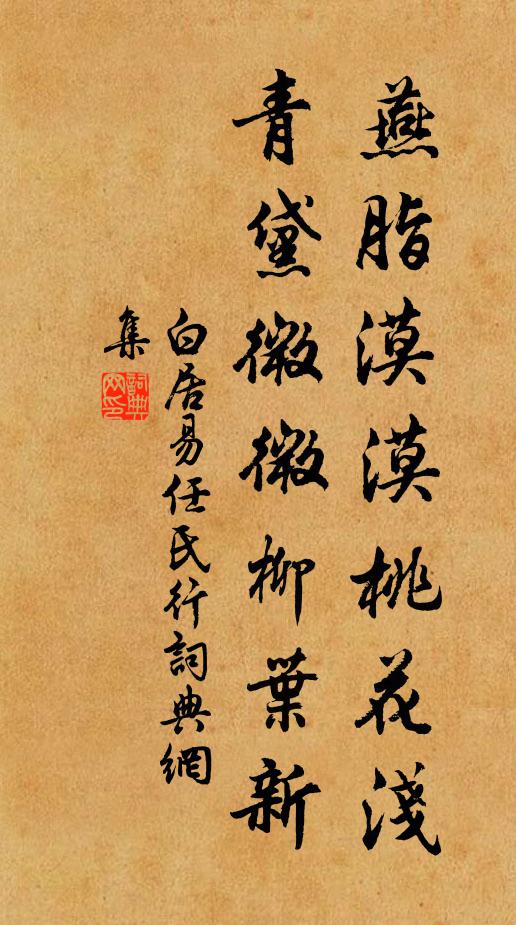 燕脂漠漠桃花淺
青黛微微柳葉新
白居易任氏行詞典網
集
詞典网印